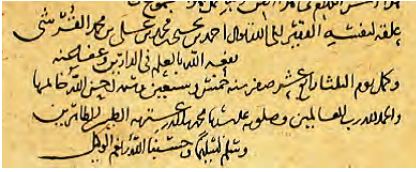 علقه لنفسه الفقير الى الله احمد بن يحيى محمد بن علي بن محمد القرشي
نفعه الله بالعلم في الدارين وعفا عنه
وكمل يوم الثلثا رابع عشر صفر سنه خمس وسبعين احسن الله خاتمتها
والحمد لله رب العالمين وصلوته على سيدنا محمد الطيبين الطاهرين
وسلم تسليما وحسبنا الله ونعم الوكيل